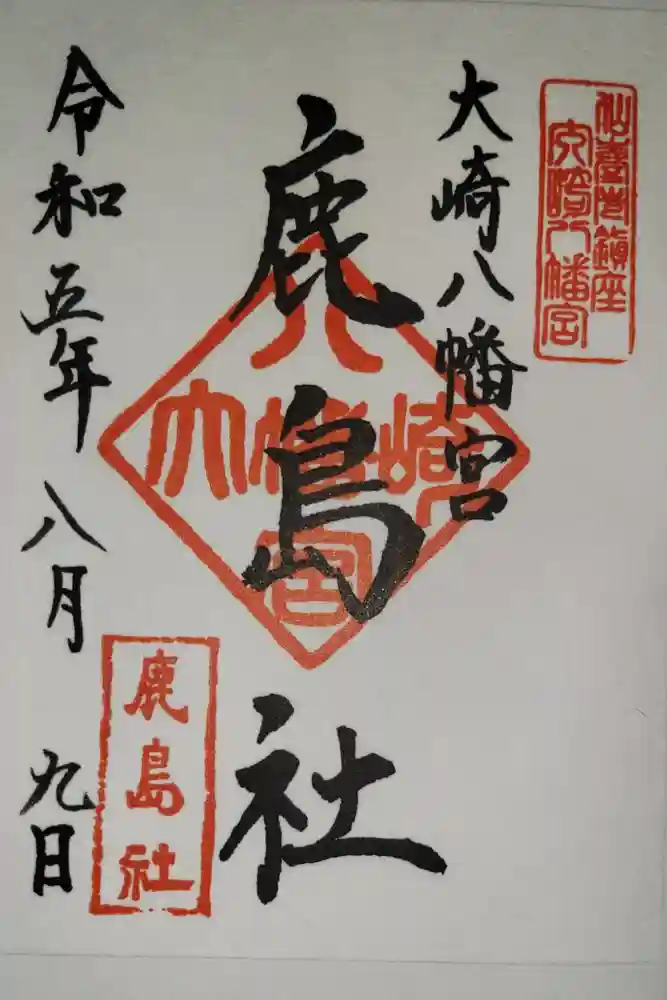 仙臺市鎮座
大崎八幡宮
大崎八幡宮
鹿島社
八
大幡崎
宮
鹿島社
令和五年八月九日